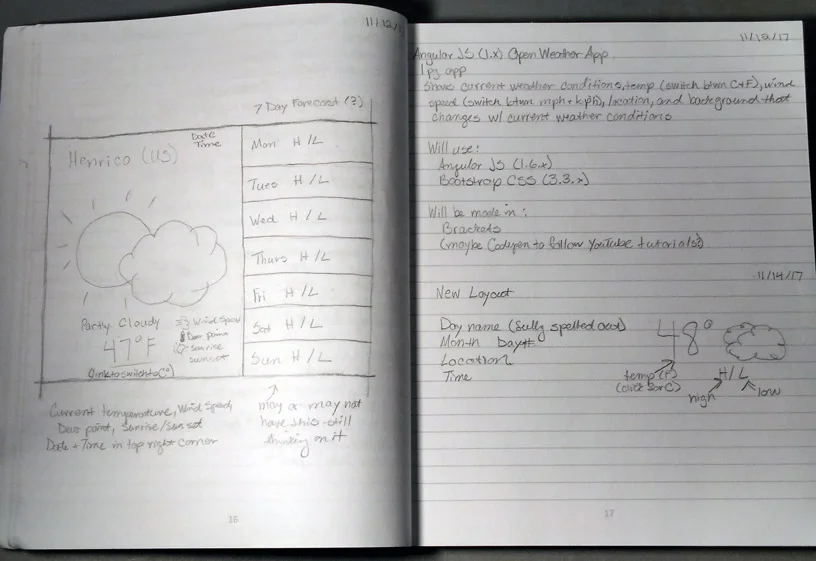 11/12/17
7 Day Forecast (?)
Date
Time
Henrico (US)
Mon H/L
Tues H/L
Wed H/L
Thurs H/L
Fri H/L
Sat H/L
Sun H/L
Partly Cloudy
47°F
(link to switch to C°)
Wind Speed
Dew point
Sunrise
sunset
Current temperature, Wind Speed,
Dew point, Sunrise/Sunset
Date + Time in top right corner
may or may not
have this - still
thinking on it
16
11/12/17
Angular JS (1.x) Open Weather App
1 pg app
shows current weather conditions, temp (switch btwn C+F), wind
speed (switch btwn mph + kph), location, and background that
changes w/ current weather conditions
Will use:
Angular JS (1.6.x)
Bootstrap CSS (3.3.x)
Will be made in:
Brackets
(maybe Codepen to follow YouTube tutorials?)
11/14/17
New Layout
Day name (fully spelled out)
Month Day#
Location
Time
48°
temp (F)
(click for C)
H/L
high
low
17